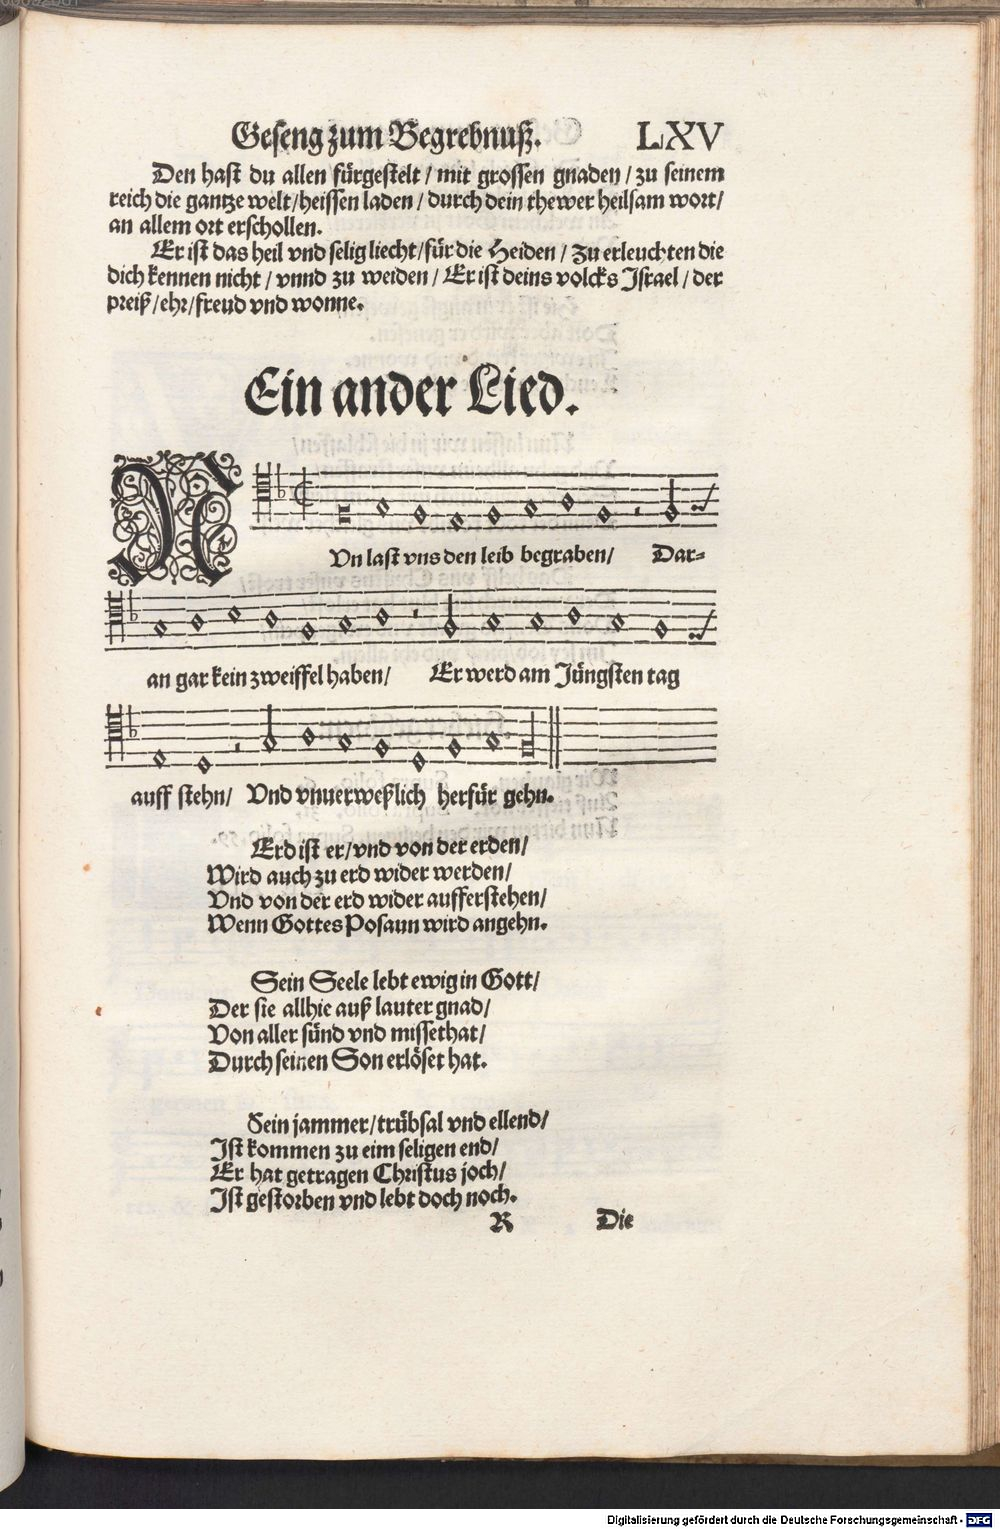 Geseng zum Begrebnuß. LXV
Den hast du allen fürgestelt / mit grossen gnaden / zu seinem
reich die gantze welt / heissen laden / durch dein thewer heilsam wort /
an allem ort erschollen.
Er ist das heil vnd selig liecht / für die Heiden / Zu erleuchten die
dich kennen nicht / vnnd zu weiden / Er ist deins volcks Israel / der
preiß / ehr / freud vnd wonne.
Ein ander Lied.
NVn last vns den leib begraben / Dar=
an gar kein zweiffel haben / Er werd am Jüngsten tag
auff stehn / Vnd vnuerweßlich herfür gehn.
Erd ist er / vnd von der erden /
Wird auch zu erd wider werden /
Vnd von der erd wider aufferstehen /
Wenn Gottes Posaun wird angehn.
Sein Seele lebt ewig in Gott /
Der sie allhie auß lauter gnad /
Von aller sünd vnd missethat /
Durch seinen Son erlöset hat.
Sein jammer / trübsal vnd ellend /
Ist kommen zu eim seligen end /
Er hat getragen Christus joch /
Ist gestorben vnd lebt doch noch.
R Die
Digitalisierung gefördert durch die Deutsche Forschungsgemeinschaft - DFG